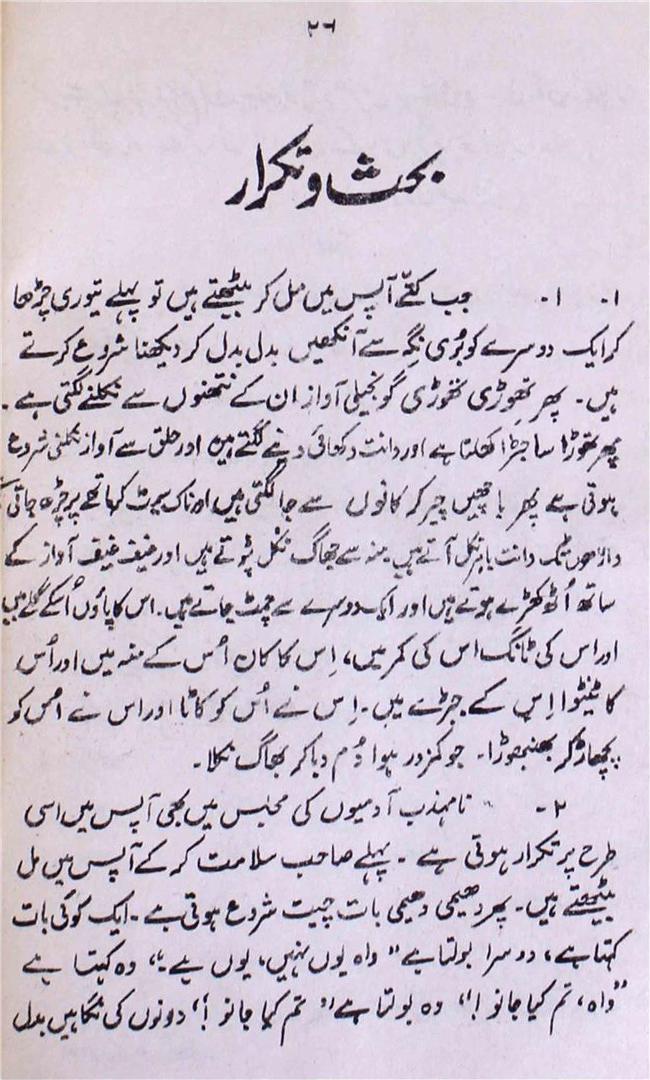 ۲۶
بحث و تکرار
۱- ۱- جب کتّے آپس میں مل کر بیٹھتے ہیں تو پہلے تیوری چڑھا
کر ایک دوسرے کو بُری نِگہ سے آنکھیں بدل بدل کر دیکھنا شروع کرتے
ہیں۔ پھر تھوڑی تھوڑی گونجیلی آواز ان کے نتھنوں سے نکلنے لگتی ہے۔
پھر تھوڑا سا جبڑا کھلتا ہے اور دانت دکھائی دینے لگتے ہیں اور حلق سے آواز نکلنی شروع
ہوتی ہے پھر باچھیں چِر کر کانوں سے جا لگتی ہیں اور ناک سمٹ کر ماتھے پر چڑھ جاتی
داڑھوں تک دانت باہر نکل آتے ہیں۔ منہ سے جھاگ نکل پڑتے ہیں اور عنیف آواز کے
ساتھ اُٹھ کھڑے ہوتے ہیں اور ایک دوسرے سے چمٹ جاتے ہیں۔ اس کا پاؤں اُسکے گلے میں
اور اس کی ٹانگ اس کی کمر میں، اِس کا کان اُس کے منہ میں اور اُس
کا ٹینٹوا اِس کے جبڑے میں۔ اِس نے اُس کو کاٹا اور اس نے اُس کو
پچھاڑ کر بھنبھوڑا۔ جو کمزور ہوا دُم دبا کر بھاگ نکلا۔
۲- نامہذب آدمیوں کی مجلس میں بھی آپس میں اسی
طرح پر تکرار ہوتی ہے۔ پہلے صاحب سلامت کر کے آپس میں مل
بیٹھتے ہیں۔ پھر دھیمی دھیمی بات چیت شروع ہوتی ہے۔ ایک کوئی بات
کہتا ہے، دوسرا بولتا ہے "واہ یوں نہیں، یوں ہے"، وہ کہتا ہے
"واہ، تم کیا جانو!" وہ بولتا ہے "تم کیا جانو!" دونوں کی نگاہیں بدل